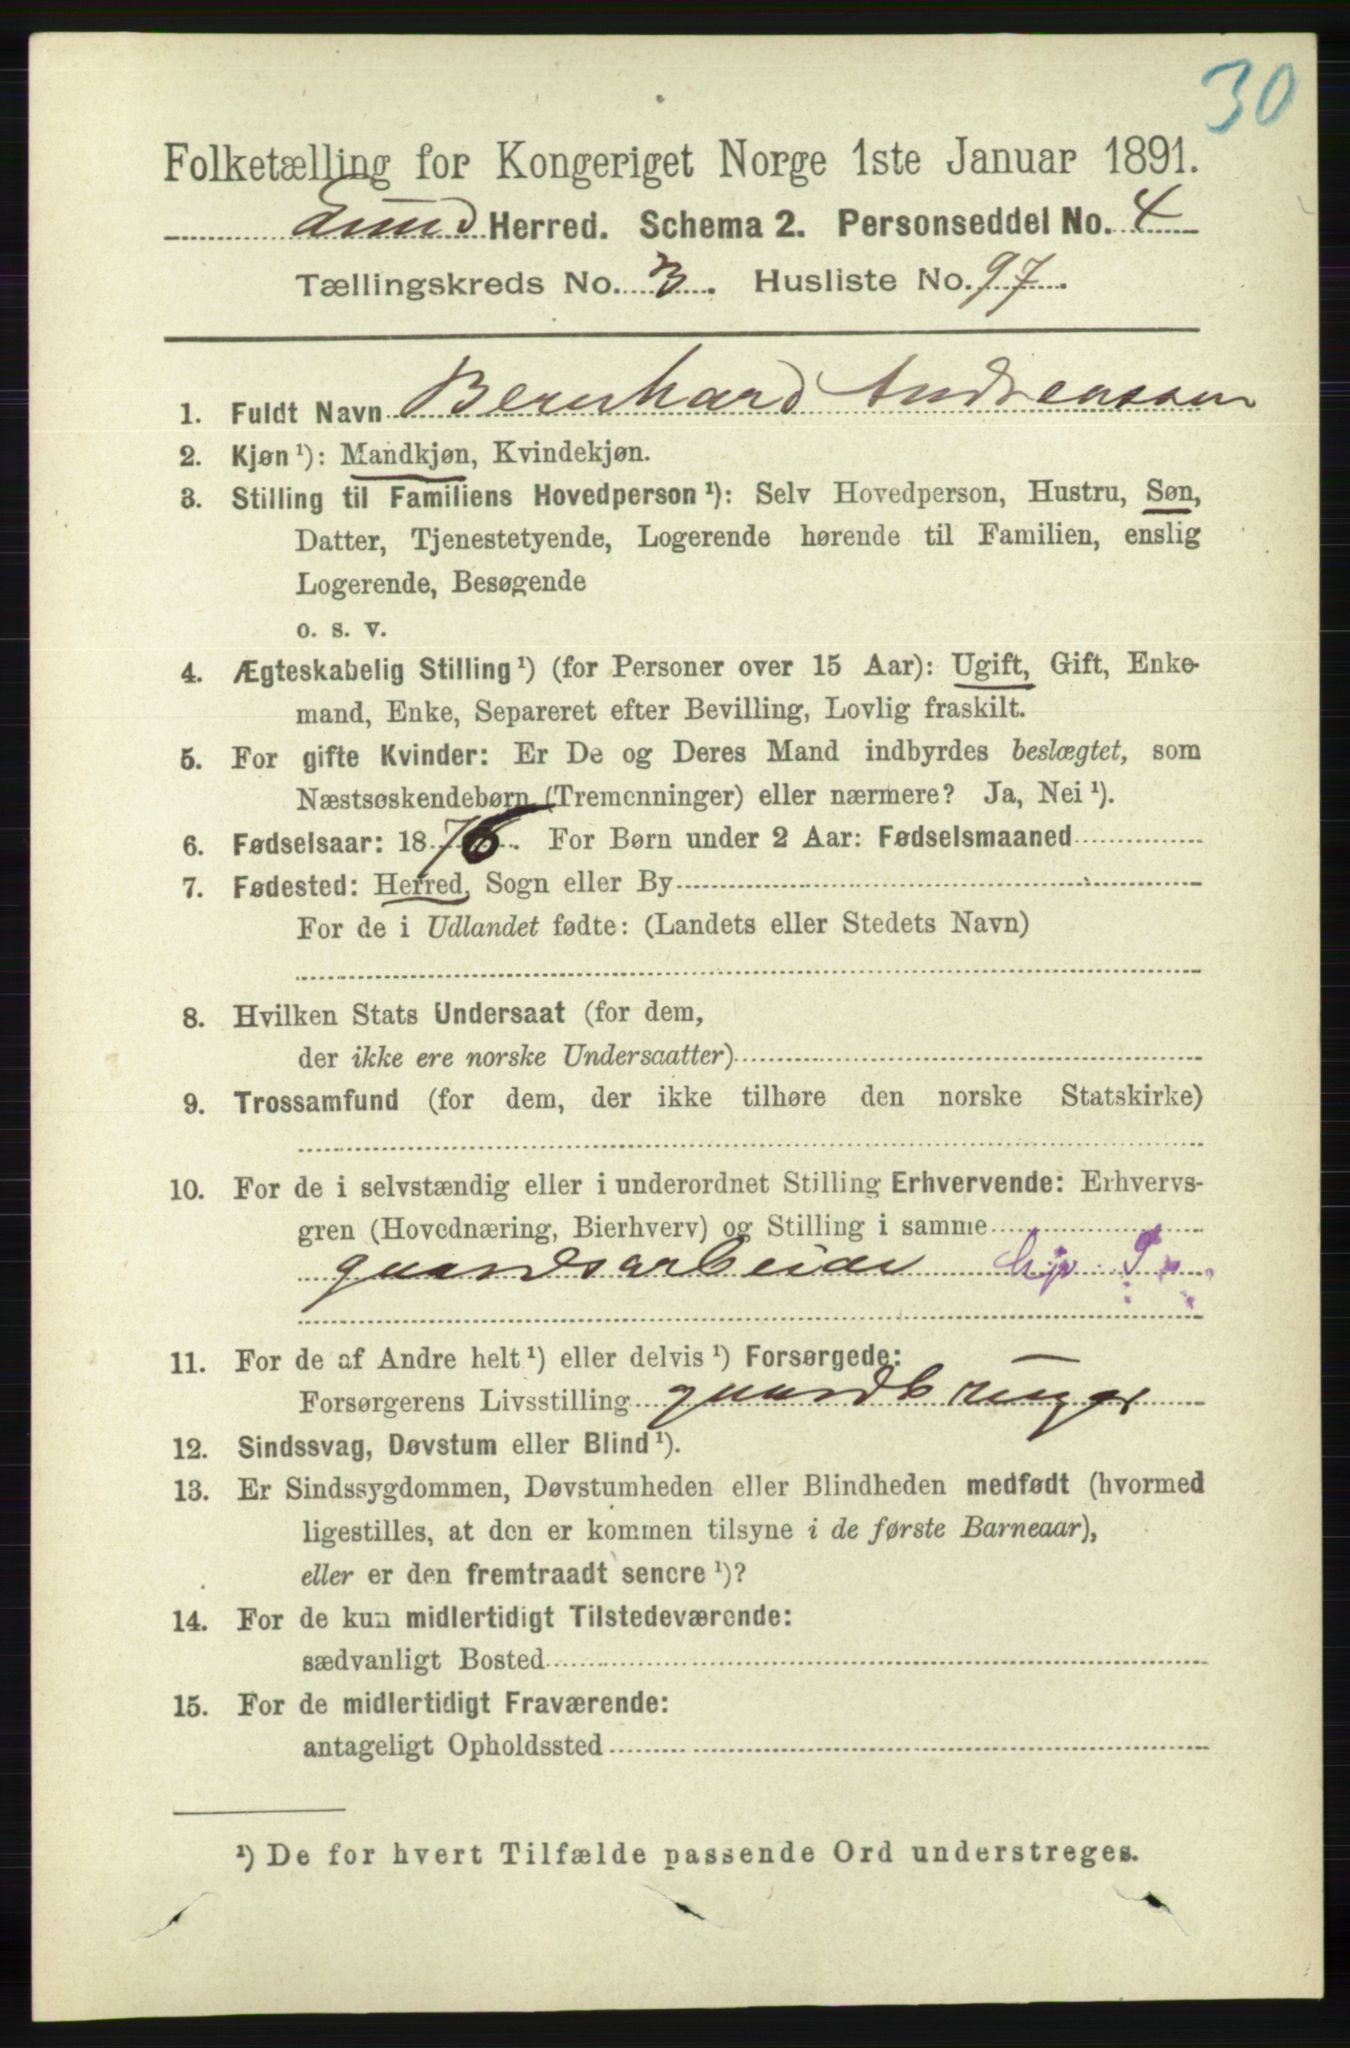 30
Folketælling for Kongeriget Norge 1ste Januar 1891.
Lund Herred. Schema 2. Personseddel No. 4
Tællingskreds No. 3. Husliste No. 97.
1. Fuldt Navn Bernhard Andreassen
2. Kjøn ¹): Mandkjøn, Kvindekjøn.
3. Stilling til Familiens Hovedperson ¹): Selv Hovedperson, Hustru, Søn,
Datter, Tjenestetyende, Logerende hørende til Familien, enslig
Logerende, Besøgende
o. s. v.
4. Ægteskabelig Stilling ¹) (for Personer over 15 Aar): Ugift, Gift, Enke-
mand, Enke, Separeret efter Bevilling, Lovlig fraskilt.
5. For gifte Kvinder: Er De og Deres Mand indbyrdes beslægtet, som
Næstsøskendebørn (Tremenninger) eller nærmere? Ja, Nei ¹).
6. Fødselsaar: 1876. For Børn under 2 Aar: Fødselsmaaned
7. Fødested: Herred, Sogn eller By
For de i Udlandet fødte: (Landets eller Stedets Navn)
8. Hvilken Stats Undersaat (for dem,
der ikke ere norske Undersaatter)
9. Trossamfund (for dem, der ikke tilhøre den norske Statskirke)
10. For de i selvstændig eller i underordnet Stilling Erhvervende: Erhvervs-
gren (Hovednæring, Bierhverv) og Stilling i samme
gaardsarbeide hjp
11. For de af Andre helt ¹) eller delvis ¹) Forsørgede:
Forsørgerens Livsstilling gaardbruger
12. Sindssvag, Døvstum eller Blind ¹).
13. Er Sindssygdommen, Døvstumheden eller Blindheden medfødt (hvormed
ligestilles, at den er kommen tilsyne i de første Barneaar),
eller er den fremtraadt senere ¹)?
14. For de kun midlertidigt Tilstedeværende:
sædvanligt Bosted
15. For de midlertidigt Fraværende:
antageligt Opholdssted
¹) De for hvert Tilfælde passende Ord understreges.